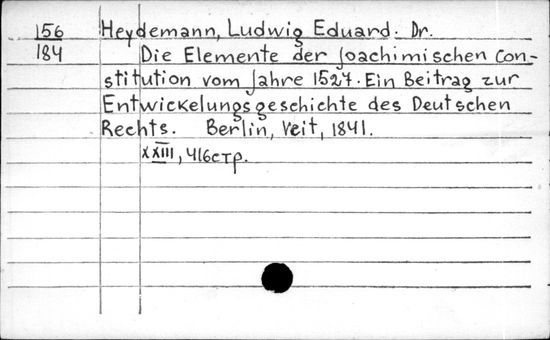 156 Heydemann, Ludwig Eduard. Dr.
184 Die Elemente der Joachimischen Con-
stitution vom Jahre 1527. Ein Beitrag zur
Entwickelungsgeschichte des Deutschen
Rechts. Berlin, Veit, 1841.
XXIII, 416стр.